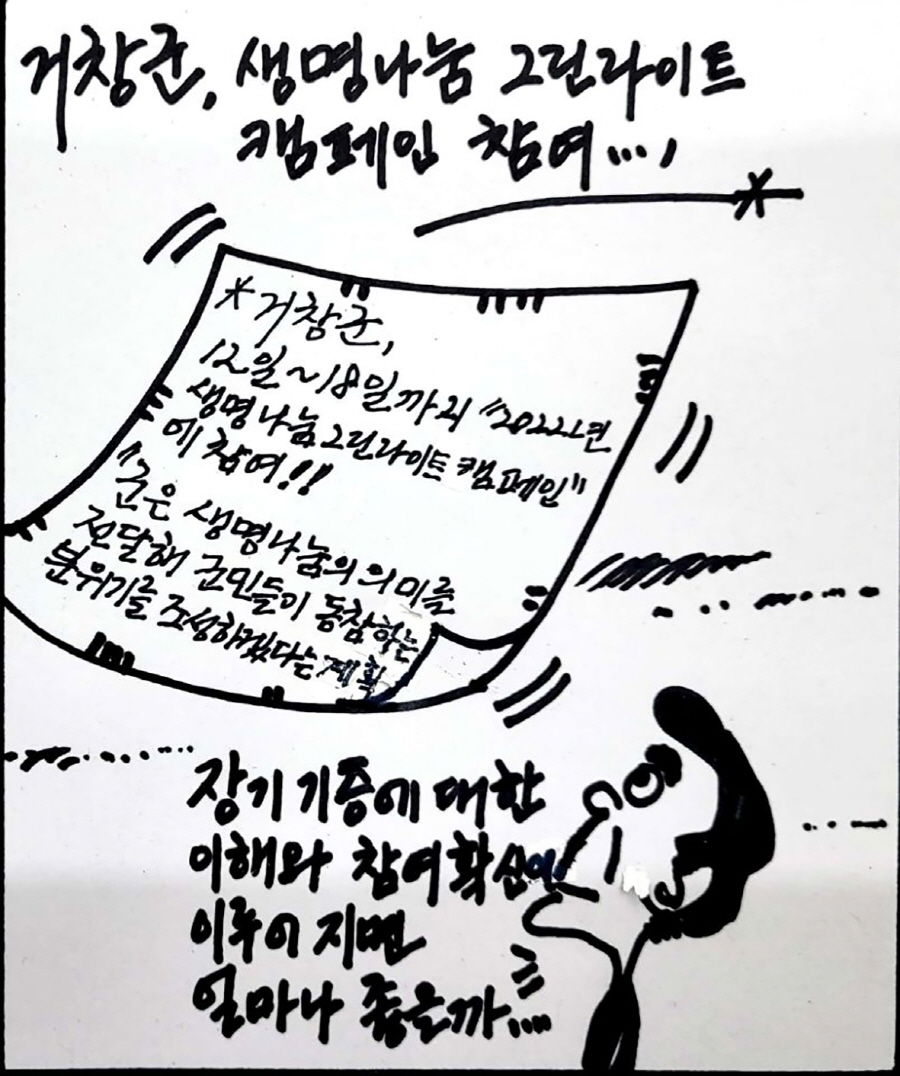 거창군, 생명나눔 그린라이트
캠페인 참여...,
*거창군,
12일~18일까지 "2022년
생명나눔그린라이트 캠페인"
에 참여!!
"군은 생명나눔의 의미를
전달해 군민들이 동참하는
분위기를 조성하겠다는 계획
장기기증에 대한
이해와 참여확산이
이루어 지면
얼마나 좋을까....